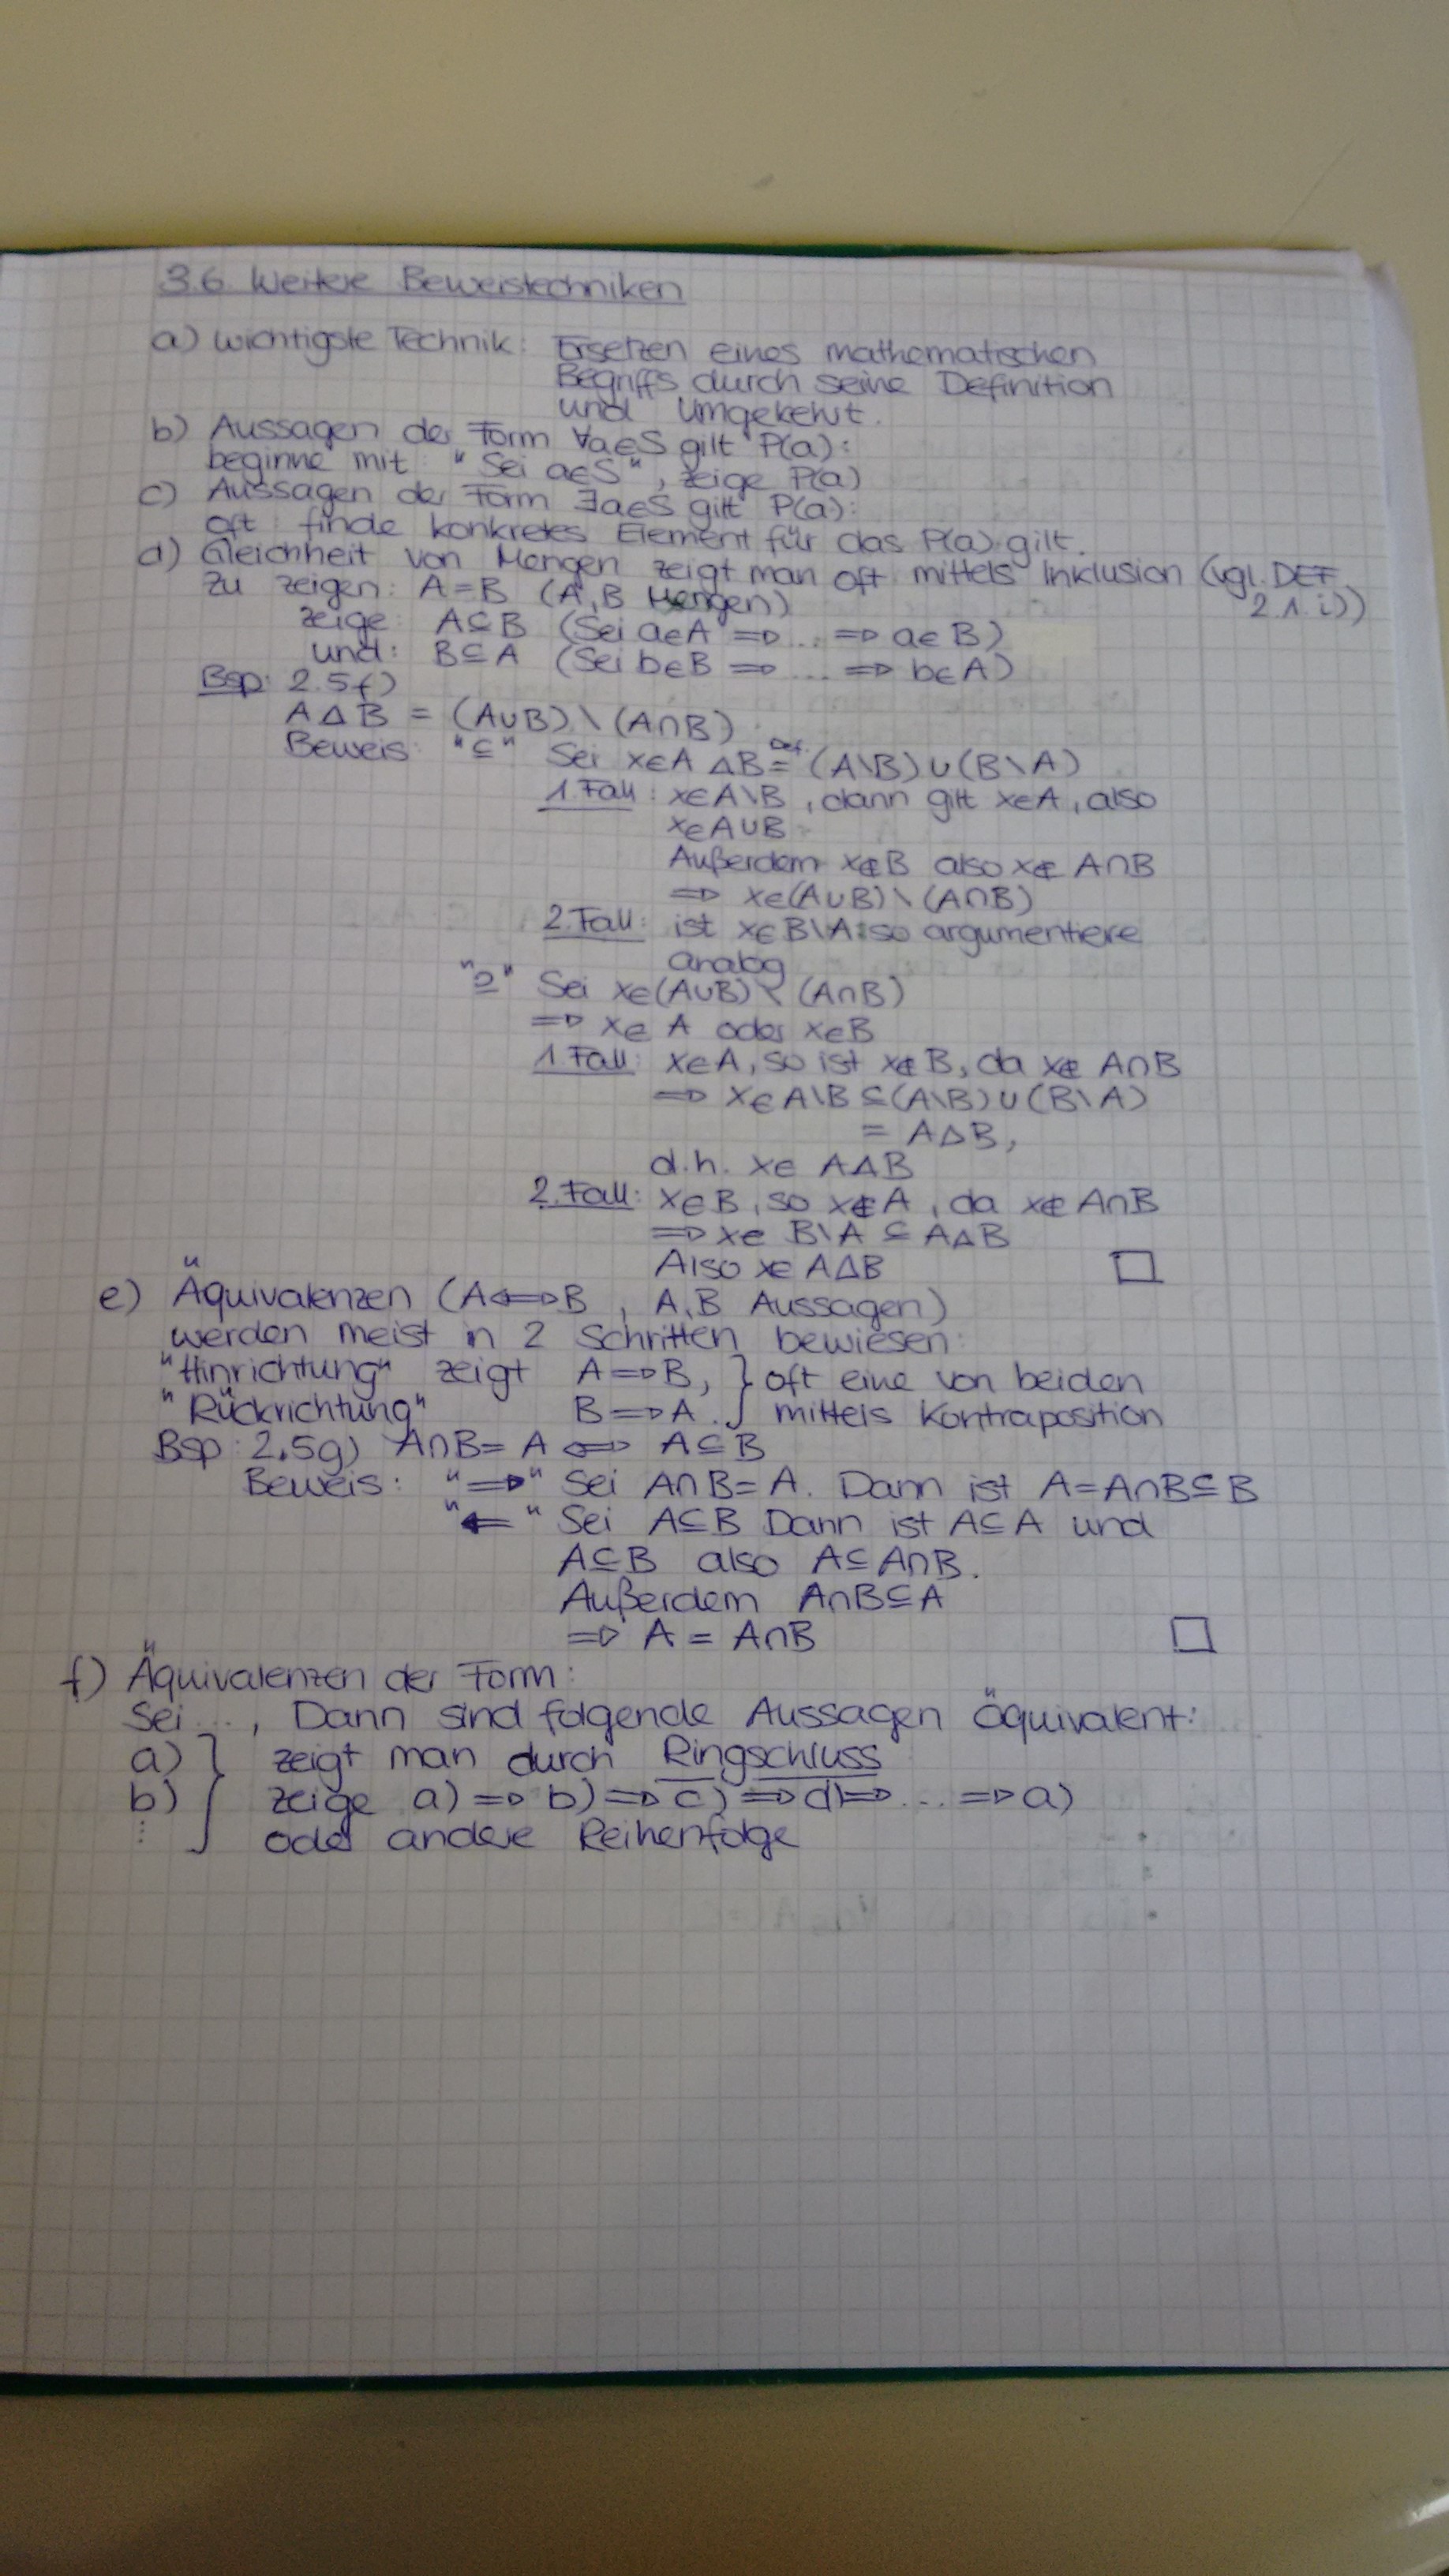 3.6. Weitere Beweistechniken
a) wichtigste Technik: Ersetzen eines mathematischen
Begriffs durch seine Definition
und umgekehrt.
b) Aussagen der Form ∀a∈S gilt P(a):
beginne mit: "Sei a∈S", zeige P(a)
c) Aussagen der Form ∃a∈S gilt P(a):
oft: finde konkretes Element für das P(a) gilt.
d) Gleichheit von Mengen zeigt man oft mittels Inklusion (vgl. DEF
2.1.i))
Zu zeigen: A=B (A,B Mengen)
zeige: A⊆B (Sei a∈A ⇒ ... ⇒ a∈B)
und: B⊆A (Sei b∈B ⇒ ... ⇒ b∈A)
Bsp: 2.5f)
A△B = (A∪B)\(A∩B)
Beweis: "⊆" Sei x∈A△B =^Def. (A\B)∪(B\A)
1.Fall: x∈A\B, dann gilt x∈A, also
x∈A∪B
Außerdem x∉B also x∉A∩B
⇒ x∈(A∪B)\(A∩B)
2.Fall: ist x∈B\A so argumentiere
analog
"⊇" Sei x∈(A∪B)\(A∩B)
⇒ x∈A oder x∈B
1.Fall: x∈A, so ist x∉B, da x∉A∩B
⇒ x∈A\B ⊆(A\B)∪(B\A)
= A△B,
d.h. x∈A△B
2.Fall: x∈B, so x∉A, da x∉A∩B
⇒ x∈B\A ⊆ A△B
Also x∈A△B □
e) Äquivalenzen (A⇔B, A,B Aussagen)
werden meist in 2 Schritten bewiesen:
"Hinrichtung" zeigt A⇒B, } oft eine von beiden
"Rückrichtung" B⇒A. } mittels Kontraposition
Bsp: 2.5g) A∩B=A ⇔ A⊆B
Beweis: "⇒" Sei A∩B=A. Dann ist A=A∩B⊆B
"⇐" Sei A⊆B Dann ist A⊆A und
A⊆B also A⊆A∩B.
Außerdem A∩B⊆A
⇒ A=A∩B □
f) Äquivalenzen der Form:
Sei..., Dann sind folgende Aussagen äquivalent:
a) } zeigt man durch Ringschluss
b) } zeige a)⇒b)⇒c)⇒d)⇒...⇒a)
⋮ } oder andere Reihenfolge